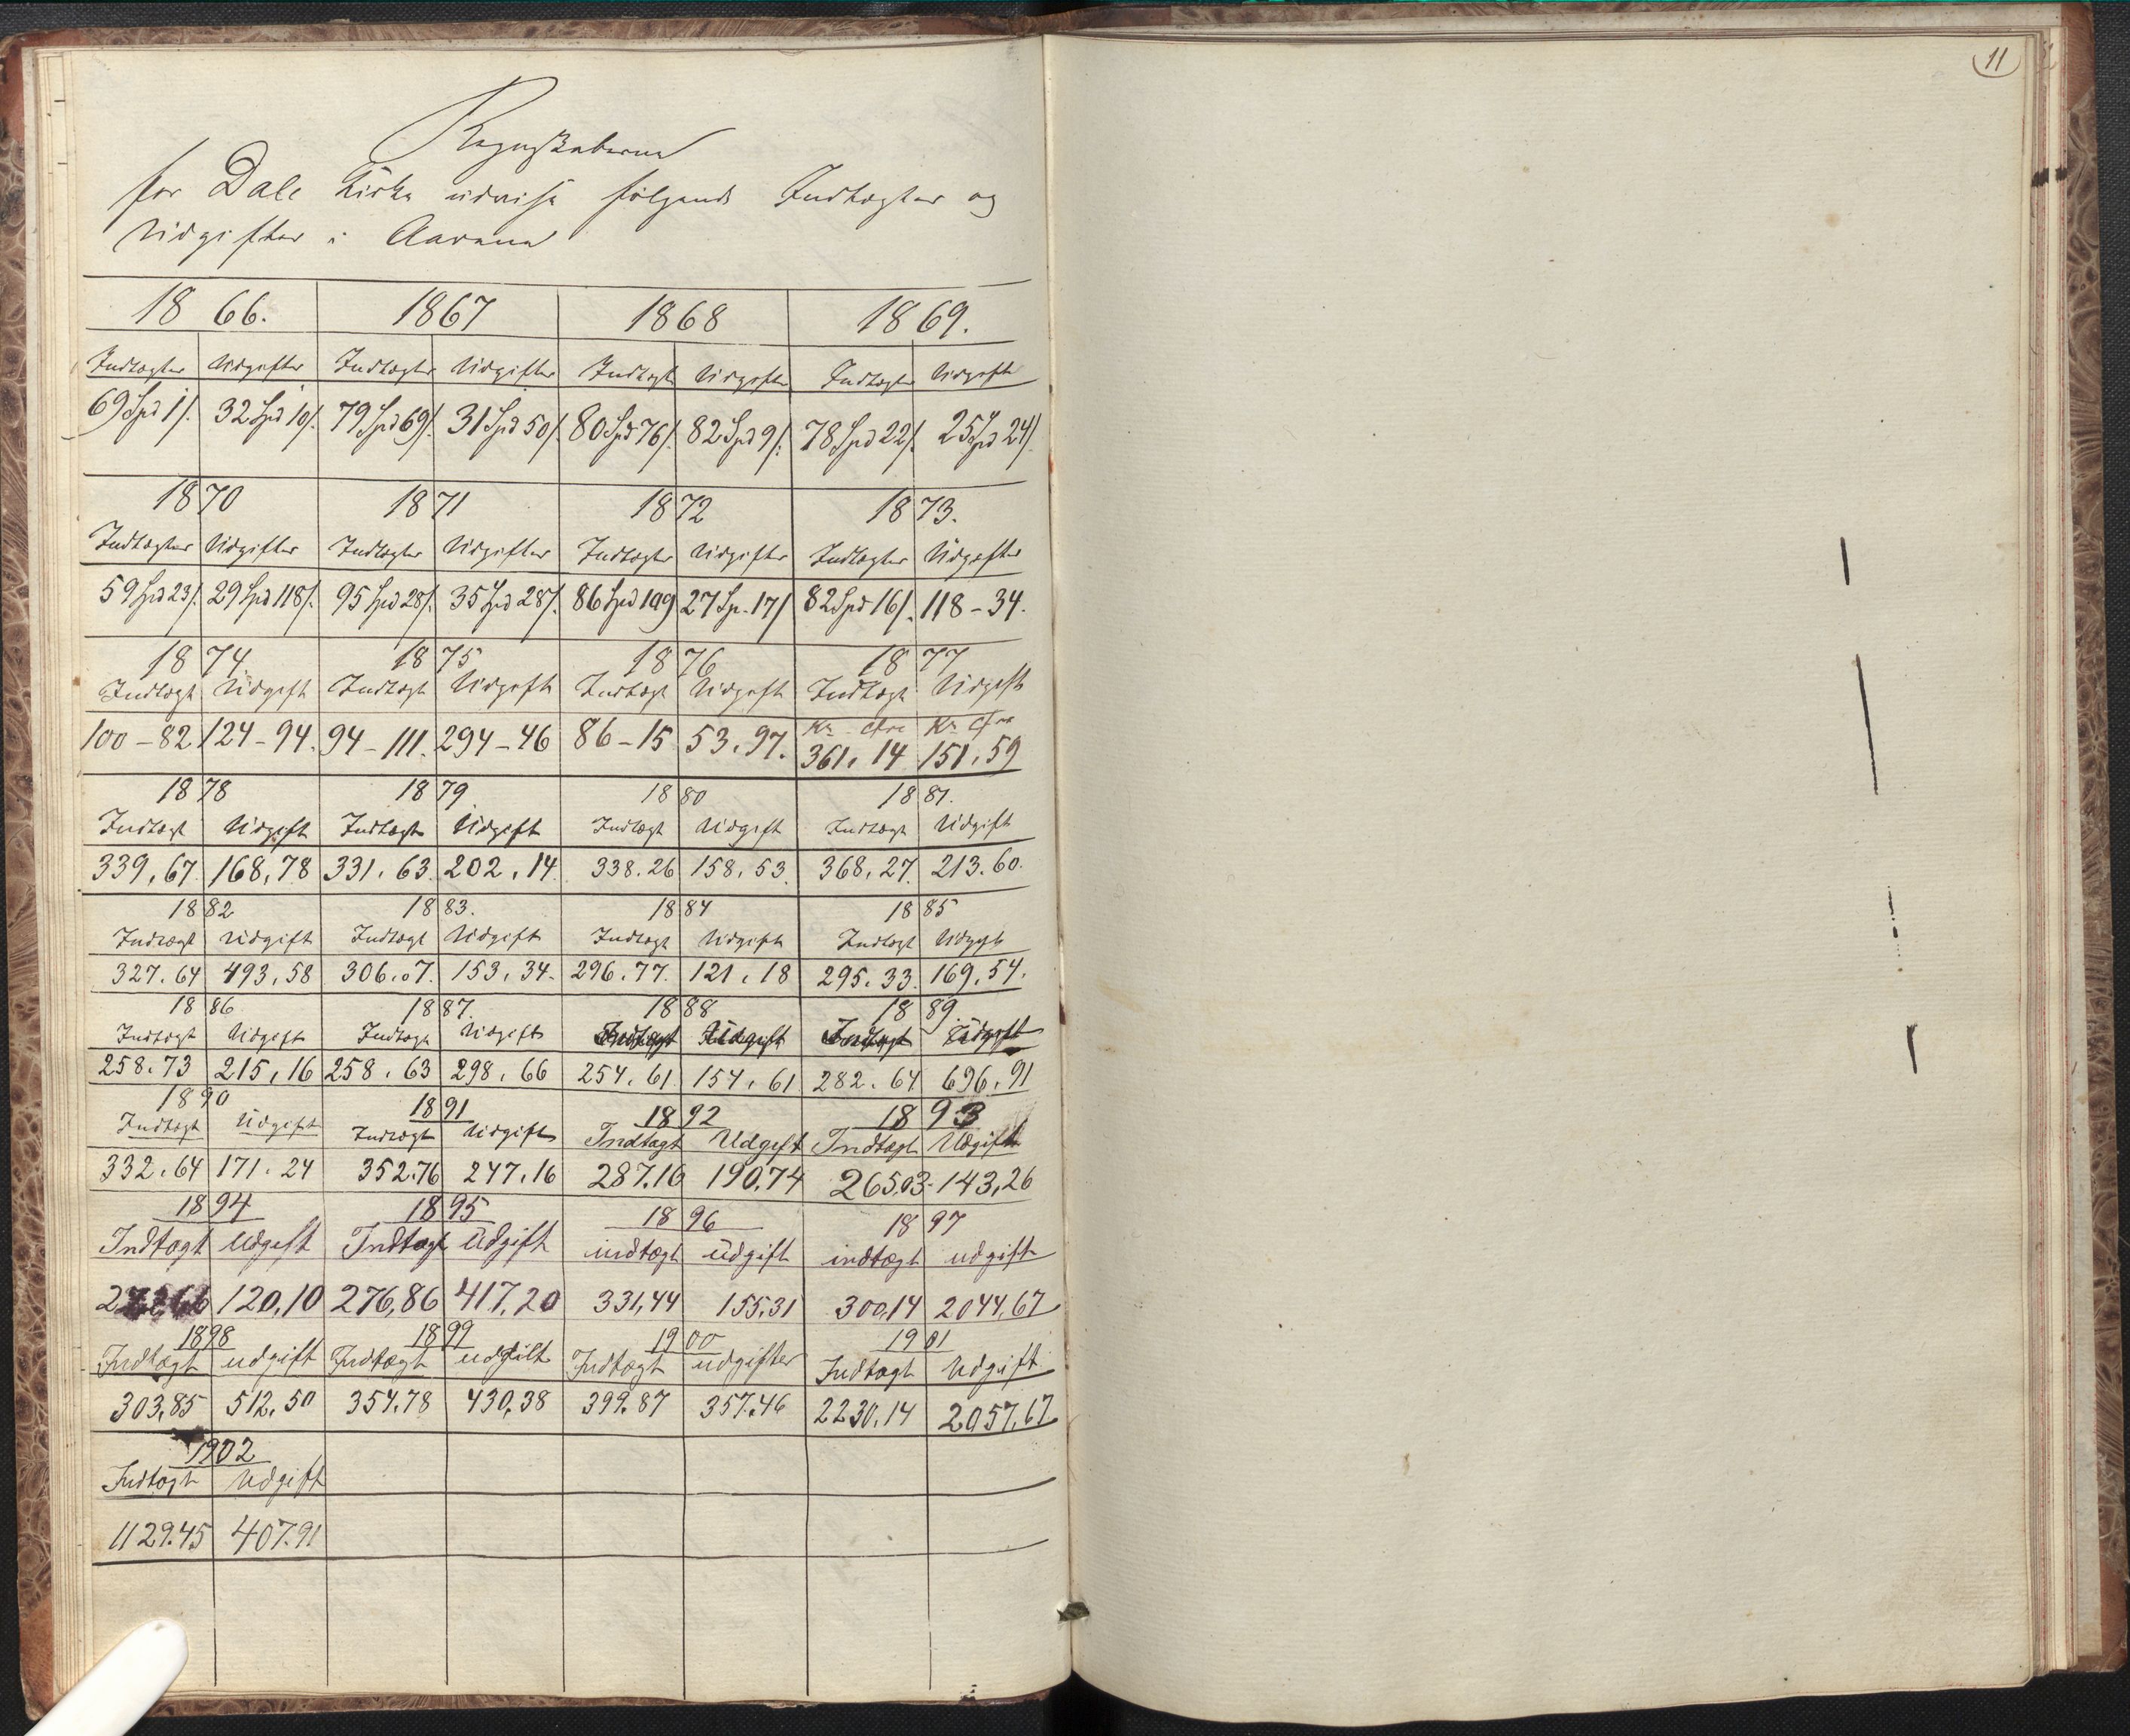 Regnskaberne
for Dale Kirke udvise følgende Indtægter og
Udgifter i Aarene
1866. 1867 1868 1869.
Indtægter Udgifter Indtægter Udgifter Indtægt Udgifter Indtægter Udgift
69 Spd 1 ß. 32 Spd 10 ß. 79 Spd 69 ß. 31 Spd 50 ß. 80 Spd 76 ß. 82 Spd 9 ß. 78 Spd 22 ß. 25 Spd 24 ß
1870 1871 1872 1873.
Indtægter Udgifter Indtægter Udgifter Indtægter Udgifter Indtægter Udgifter
59 Spd 23 ß. 29 Spd 118 ß. 95 Spd 28 ß. 35 Spd 28 ß. 86 Spd 109 27 Sp. 17 ß 82 Spd 16 ß. 118-34.
1874. 1875 1876 1877
Indtægt Udgift Indtægt Udgift Indtægt Udgift Indtægt Udgift
Kr. Øre Kr. Øre
100-82 124-94. 94-111. 294-46 86-15 53.97. 361, 14 151,59
1878 1879 1880 1881.
Indtægt Udgift Indtægt Udgift Indtægt Udgift Indtægt Udgift
339,67. 168,78 331,63. 202,14. 338.26 158,53. 368,27. 213.60.
1882 1883. 1884 1885
Indtægt Udgift Indtægt Udgift Indtægt Udgift Indtægt Udgift
327.64 493,58 306.07. 153,34. 296.77. 121,18 295.33. 169,54.
1886 1887. 1888 1889
Indtægt Udgift Indtægt Udgift Indtægt Udgift Indtægt Udgift
258.73 215,16 258.63 298,66 254.61. 154,61 282.64 696,91
1890 1891 1892 1893
Indtægt Udgift Indtægt Udgift Indtægt Udgift Indtægt Udgift
332.64 171.24 352.76 247.16 287.16 190.74 265.03. 143,26
1894 1895 1896 1897
Indtægt Udgift Indtægt Udgift indtægt udgift indtægt udgift
120,10 276,86 417,20 331,44 155,31 300,14 2044,67
1898 1899 1900 1901
Indtægt udgift Indtægt udgift Indtægt udgifter Indtægt Udgift
303,85 512,50 354.78 430,38 399.87 357.46 2230.14 2057.67
1902
Indtægt Udgift
1129.45 407.91
11